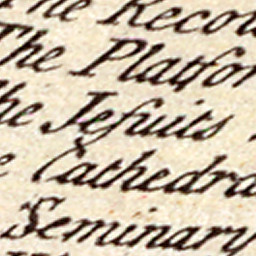 The Recol
The Platfor
the Jesuits
e Cathedra
Seminary